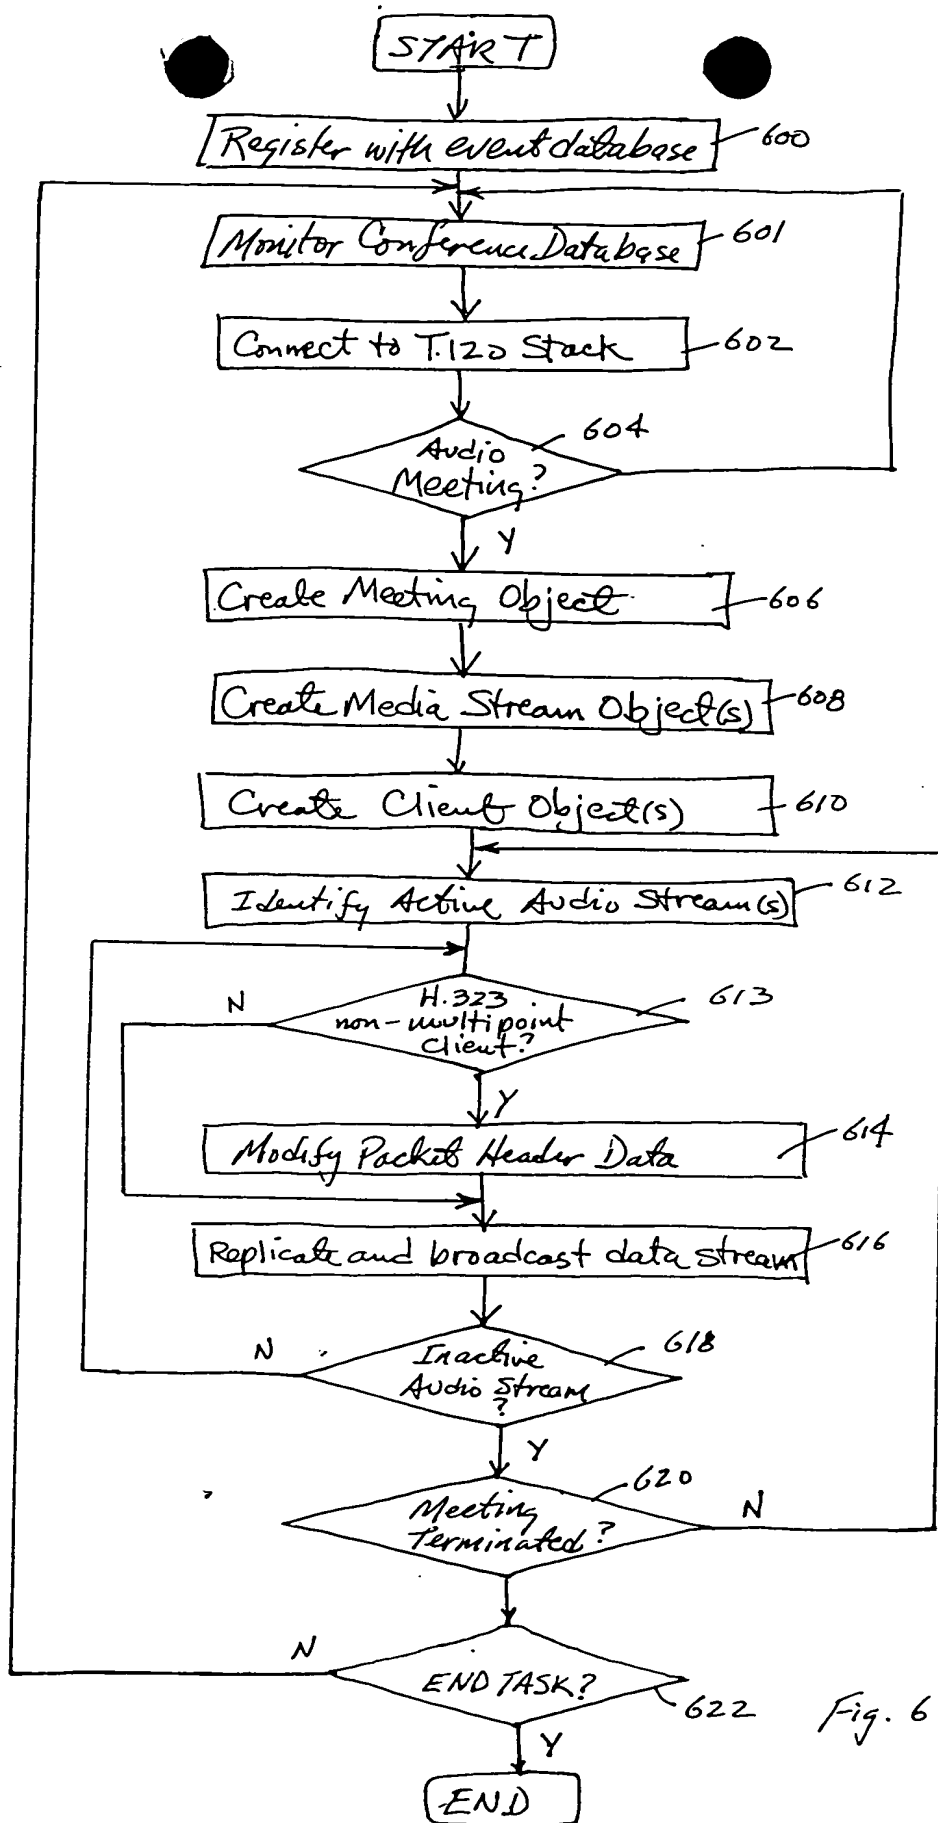 START
Register with event database 600
Monitor Conference Database 601
Connect to T.120 Stack 602
604
Audio
Meeting?
Y
Create Meeting Object 606
Create Media Stream Object(s) 608
Create Client Object(s) 610
Identify Active Audio Stream(s) 612
N
H.323
non-multipoint
Client?
613
Y
Modify Packet Header Data 614
Replicate and broadcast data stream 616
N
Inactive
Audio Stream
?
618
Y
620
Meeting
Terminated?
N
N
END TASK?
622
Y
END
Fig. 6